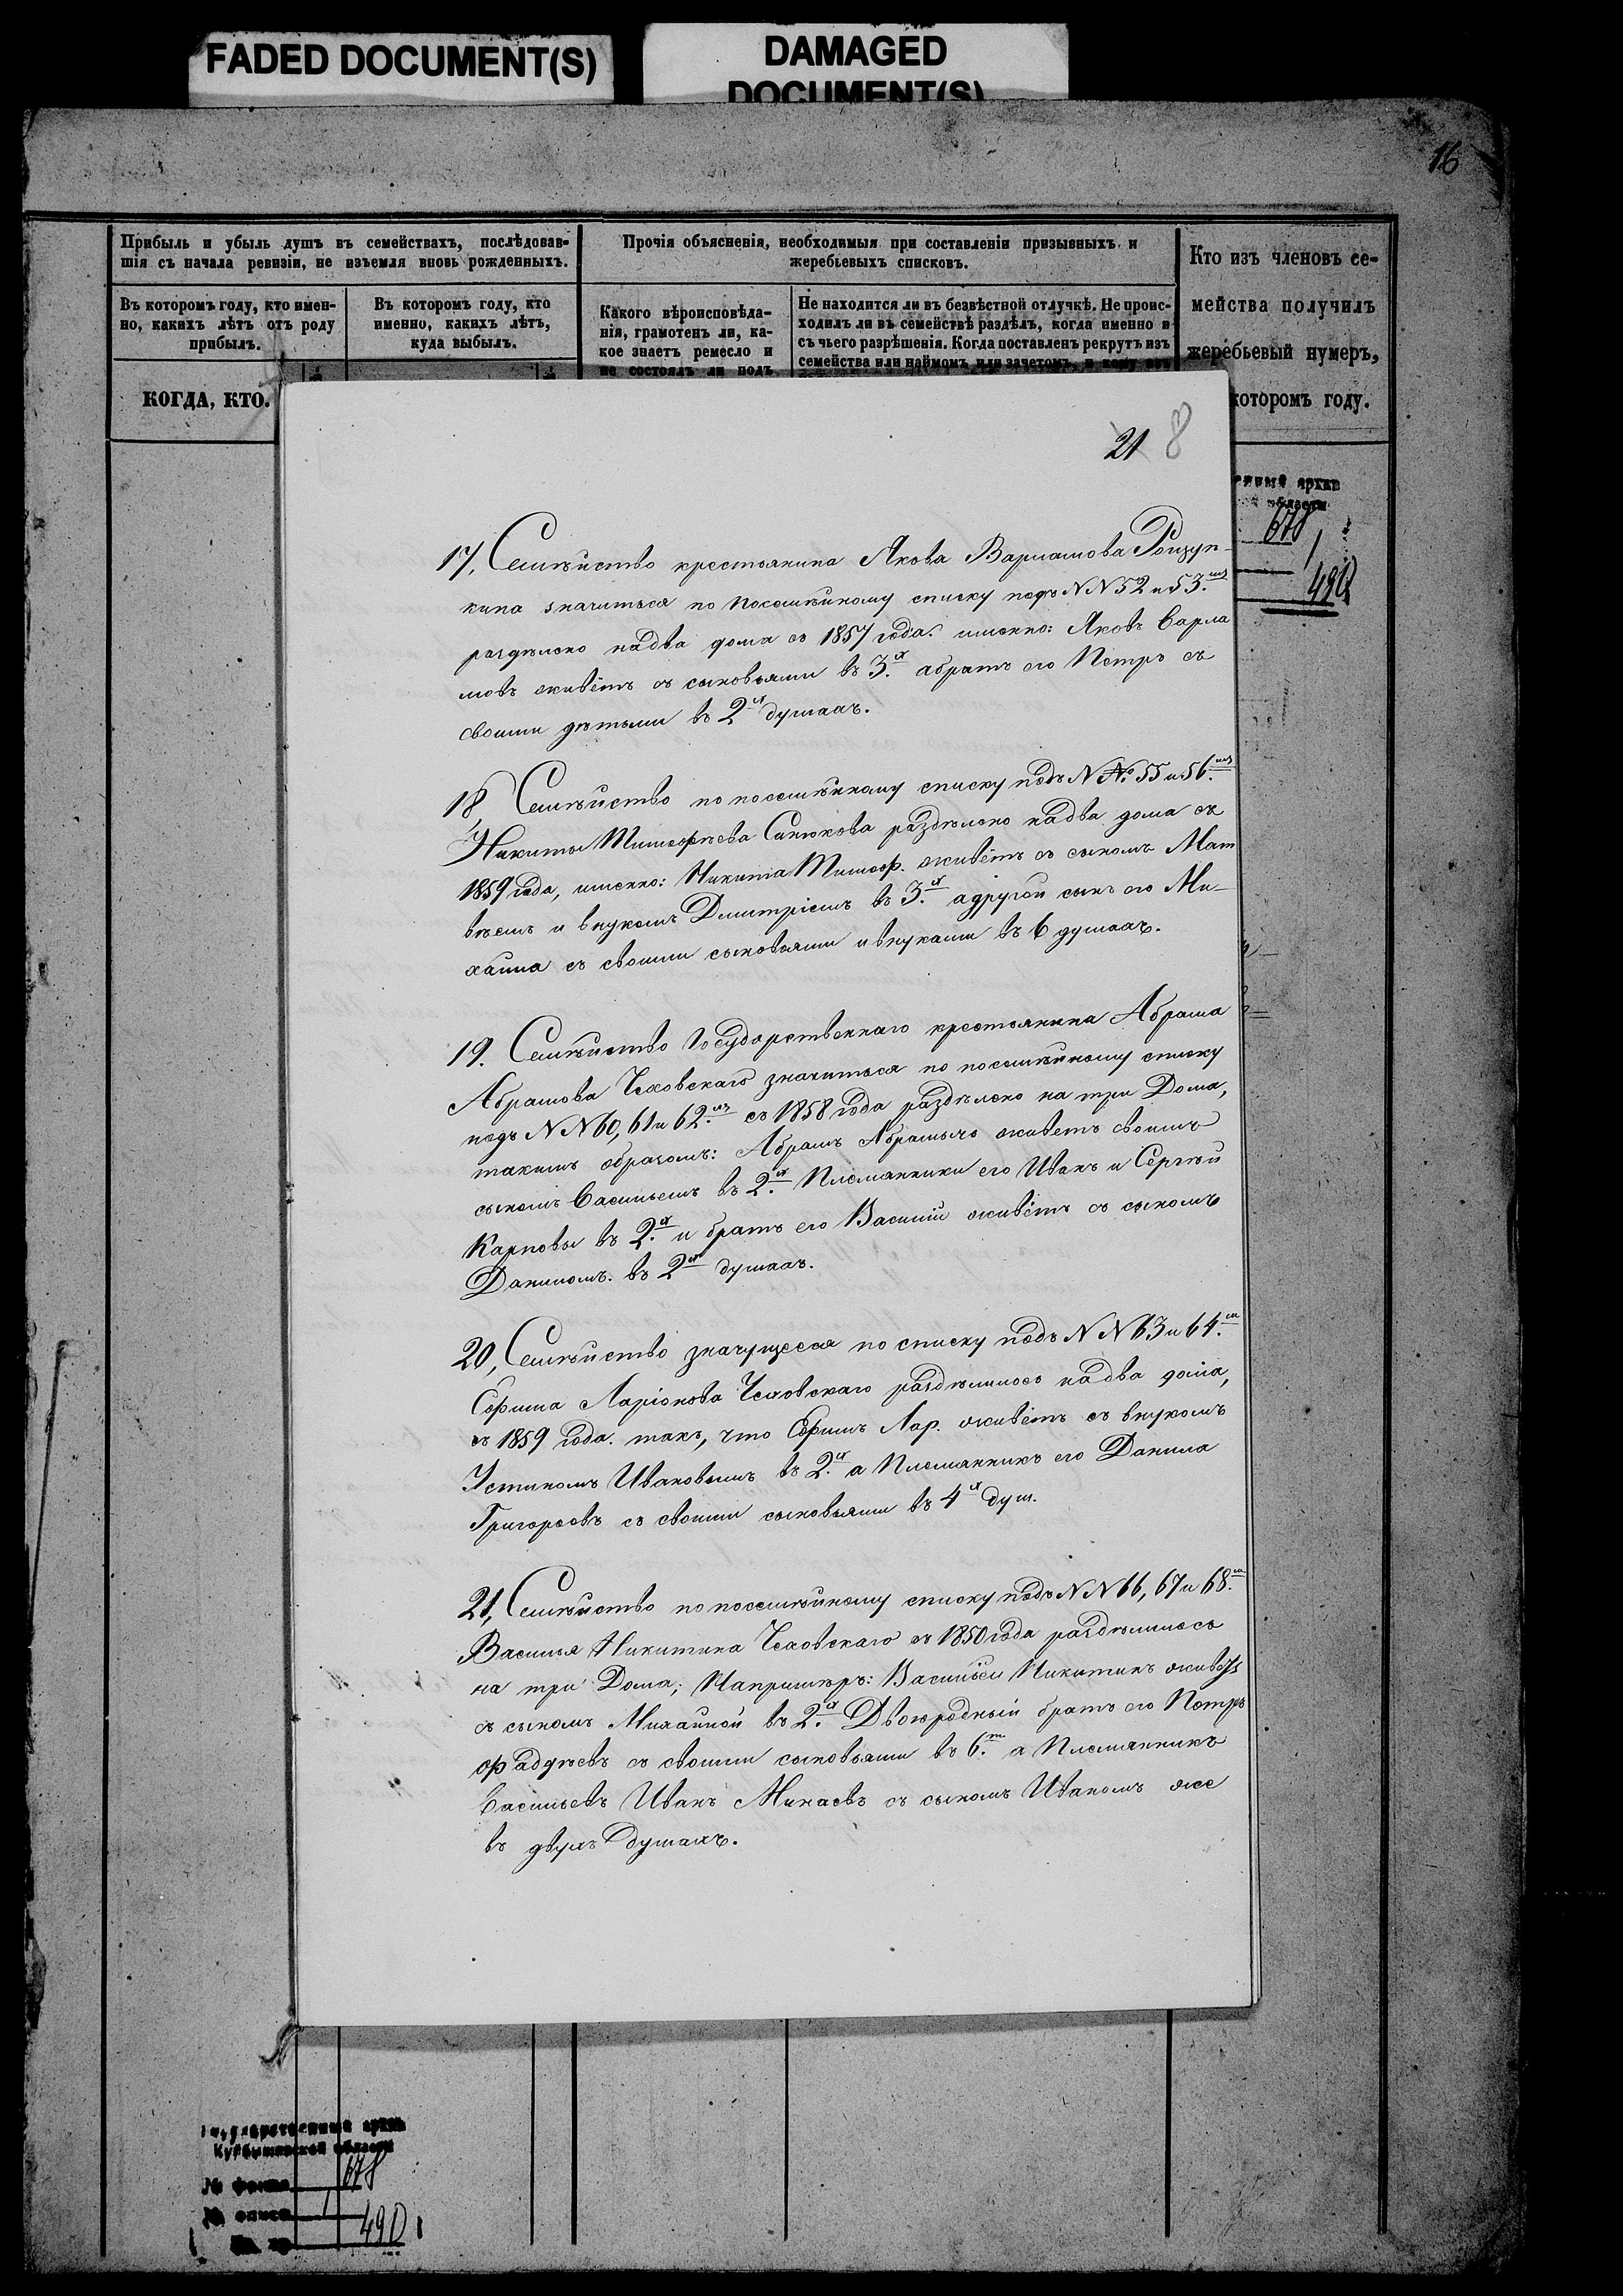 FADED DOCUMENT(S)
DAMAGED
DOCUMENT(S)
16
Прибыль и убыль душъ въ семействахъ, послѣдовав-
шія съ начала ревизіи, не изъемля вновь рожденныхъ.
Въ которомъ году, кто имен-
но, какихъ лѣтъ отъ роду
прибылъ.
Въ которомъ году, кто
именно, какихъ лѣтъ,
куда выбылъ.
КОГДА, КТО.
Прочія объясненія, необходимыя при составленіи призывныхъ и
жеребьевыхъ списковъ.
Какого вѣроисповѣда-
нія, грамотенъ ли, ка-
кое знаетъ ремесло и
не состоялъ ли подъ
Не находится ли въ безвѣстной отлучкѣ. Не проис-
ходилъ ли въ семействѣ раздѣлъ, когда именно и
съ чьего разрѣшенія. Когда поставленъ рекрутъ изъ
семейства или наймомъ или зачетомъ, и кому
Кто изъ членовъ се-
мейства получилъ
жеребьевый нумеръ,
которомъ году.
21 8
678
1
490
17, Семѣйство крестьянина Якова Варламова
кина значиться по посемѣйному списку подъ N N 52 и 53.мъ
разделено на два дома съ 1857 года. именно: Яковъ Варла
мовъ живётъ съ сыновьями въ 3.х а братъ его Петръ съ
своими дѣтьми въ 2х душахъ.
18, Семѣйство по посемѣйному списку подъ N № 55 и 56.мъ
Никиты Тимофѣева Санюкова раздѣлено на два дома съ
1859 года, именно: Никита Тимоф. живётъ съ сыномъ Мат
вѣемъ и внукомъ Дмитріемъ въ 3.х а другой сынъ его Ми-
хайла съ своими сыновьями и внуками въ 6 душахъ.
19. Семѣйство Государственнаго крестьянина Абрама
Абрамова Чеховскаго значиться по посемѣйному списку
подъ N N 60, 61 и 62.мъ съ 1858 года раздѣлено на три Дома,
такимъ образомъ: Абрамъ Абрамычъ живетъ своимъ
сыномъ Васильемъ въ 2.х Племянники его Иванъ и Сергѣй
Карповы въ 2.х и братъ его Василій живётъ съ сыномъ
Даниломъ. въ 2х душахъ.
20, Семѣйство значущееся по списку подъ N N 63 и 64.м
Ефима Ларіонова Чеховскаго раздѣлилось на два дома,
съ 1859 года. такъ, что Ефимъ Лар. живётъ съ внукомъ
Устиномъ Ивановымъ въ 2.х а Племянникъ его Данила
Григорьевъ съ своими сыновьями въ 4х душ.
21, Семѣйство по посемѣйному списку подъ N N 66, 67 и 68.м
Василья Никитина Чеховскаго съ 1850 года раздѣлилось
на три Дома; Напримѣръ: Василій Никитинъ живетъ
съ сыномъ Михайлой въ 2.х Двоюродный братъ его Петръ
Фадѣевъ съ своими сыновьями въ 6.т а Племянникъ
Васильевъ Иванъ Минаевъ съ сыномъ Иваномъ же
въ двухъ душахъ.
Государственный архив
Куйбышевской области
№ фонда 678
№ описи 1
490